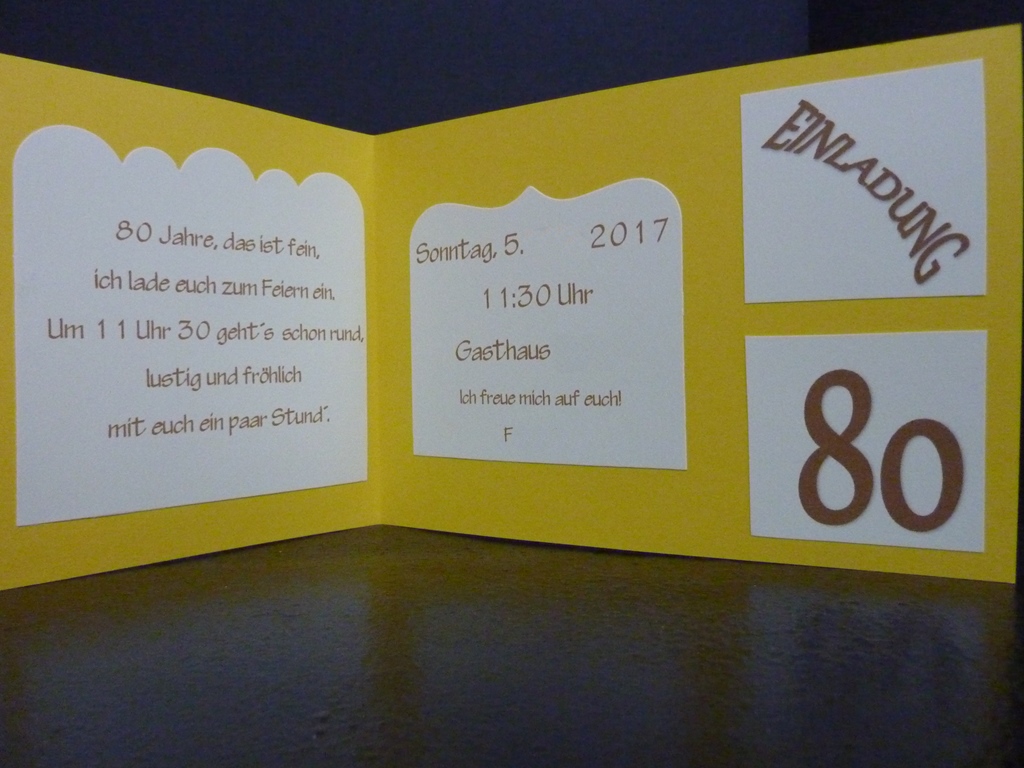 80 Jahre, das ist fein,
ich lade euch zum Feiern ein.
Um 11 Uhr 30 geht´s schon rund,
lustig und fröhlich
mit euch ein paar Stund´.
Sonntag, 5. 2017
11:30 Uhr
Gasthaus
Ich freue mich auf euch!
F
EINLADUNG
80